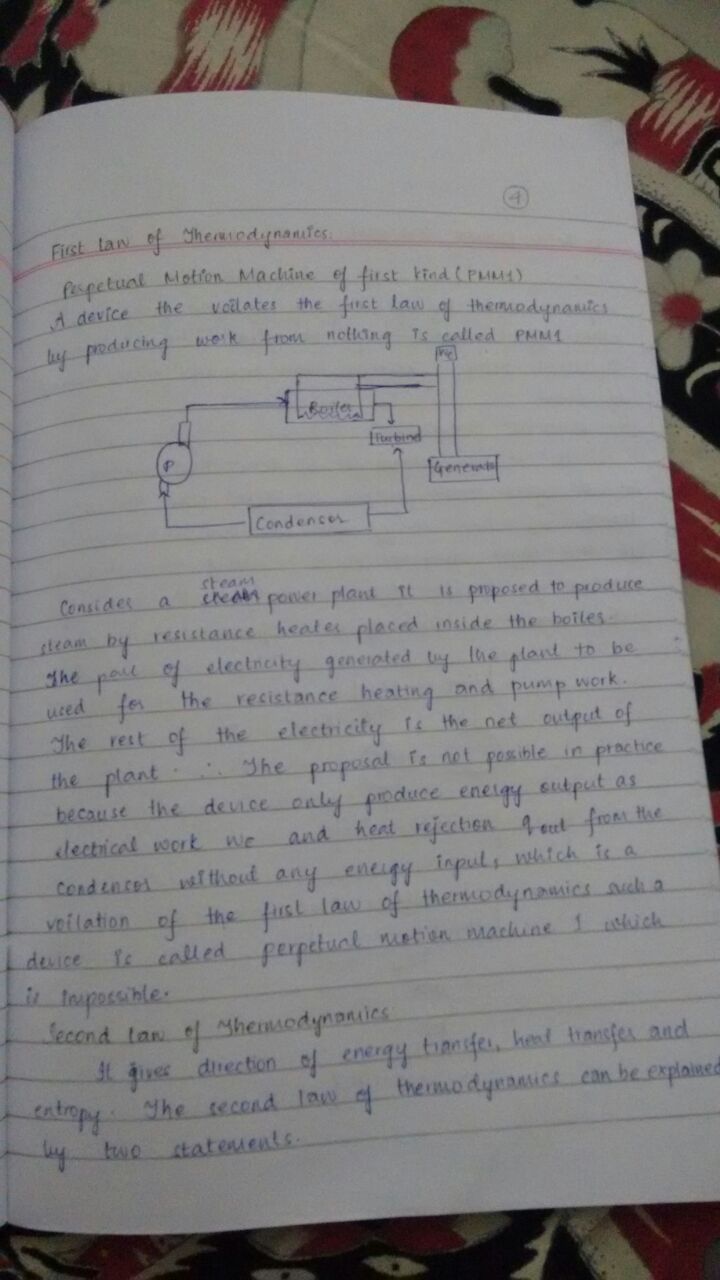 4
First law of Thermodynamics.
Perpetual Motion Machine of first kind (PMM1)
A device the voilates the first law of thermodynamics
by producing work from nothing is called PMM1
Boiler
Turbine
P
Generato
Condensor
steam
Consider a power plant it is proposed to produce
steam by resistance heater placed inside the boiler.
The part of electricity generated by the plant to be
used for the resistance heating and pump work.
The rest of the electricity is the net output of
the plant. ∴ The proposal is not possible in practice
because the device only produce energy output as
electrical work We and heat rejection q out from the
condensor without any energy input, which is a
voilation of the first law of thermodynamics such a
device is called perpetual motion machine 1 which
is impossible.
Second law of Thermodynamics
It gives direction of energy transfer, heat transfer and
entropy. The second law of thermodynamics can be explained
by two statements.